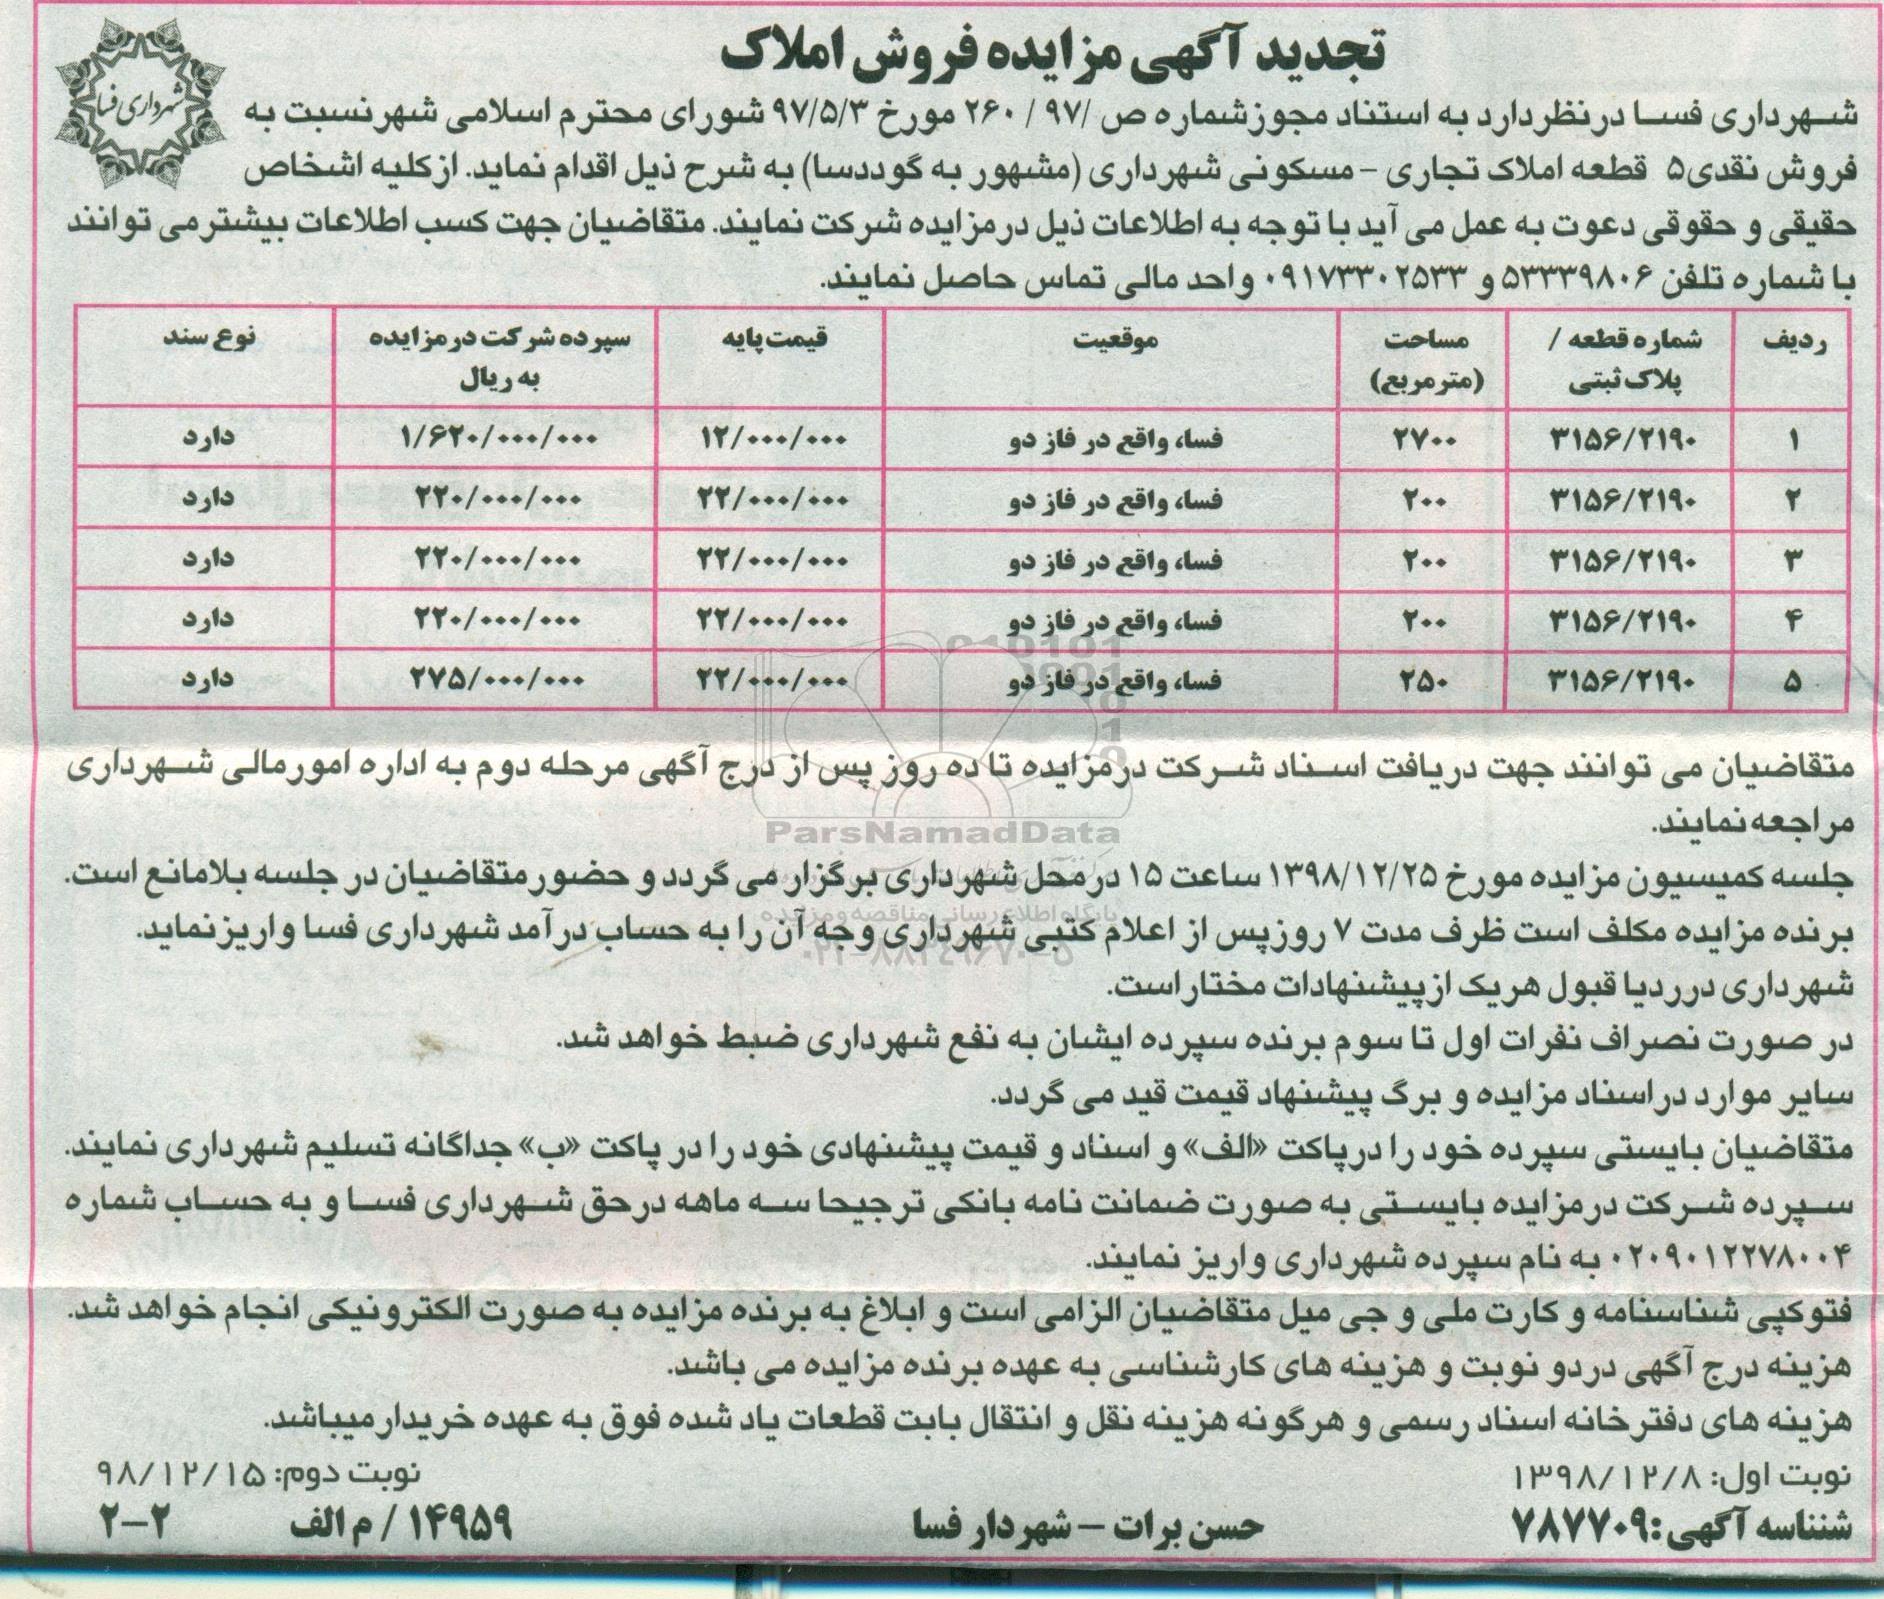 تجدید آگهی مزایده فروش املاک
شهرداری فسا
شهرداری فسا درنظردارد به استناد مجوزشماره ص /۹۷ / ۲۶۰ مورخ ۹۷/۵/۳ شورای محترم اسلامی شهرنسبت به
فروش نقدی۵ قطعه املاک تجاری – مسکونی شهرداری (مشهور به گوددسا) به شرح ذیل اقدام نماید. ازکلیه اشخاص
حقیقی و حقوقی دعوت به عمل می آید با توجه به اطلاعات ذیل درمزایده شرکت نمایند. متقاضیان جهت کسب اطلاعات بیشترمی توانند
با شماره تلفن ۵۳۳۳۹۸۰۶ و ۰۹۱۷۳۳۰۲۵۳۳ واحد مالی تماس حاصل نمایند.
ردیف شماره قطعه / پلاک ثبتی مساحت (مترمربع) موقعیت قیمت پایه سپرده شرکت درمزایده به ریال نوع سند
۱ ۳۱۵۶/۲۱۹۰ ۲۷۰۰ فسا، واقع در فاز دو ۱۲/۰۰۰/۰۰۰ ۱/۶۲۰/۰۰۰/۰۰۰ دارد
۲ ۳۱۵۶/۲۱۹۰ ۲۰۰ فسا، واقع در فاز دو ۲۲/۰۰۰/۰۰۰ ۲۲۰/۰۰۰/۰۰۰ دارد
۳ ۳۱۵۶/۲۱۹۰ ۲۰۰ فسا، واقع در فاز دو ۲۲/۰۰۰/۰۰۰ ۲۲۰/۰۰۰/۰۰۰ دارد
۴ ۳۱۵۶/۲۱۹۰ ۲۰۰ فسا، واقع در فاز دو ۲۲/۰۰۰/۰۰۰ ۲۲۰/۰۰۰/۰۰۰ دارد
۵ ۳۱۵۶/۲۱۹۰ ۲۵۰ فسا، واقع در فاز دو ۲۲/۰۰۰/۰۰۰ ۲۷۵/۰۰۰/۰۰۰ دارد
متقاضیان می توانند جهت دریافت اسناد شرکت درمزایده تا ده روز پس از درج آگهی مرحله دوم به اداره امورمالی شهرداری
مراجعه نمایند.
ParsNamadData
جلسه کمیسیون مزایده مورخ ۱۳۹۸/۱۲/۲۵ ساعت ۱۵ درمحل شهرداری برگزار می گردد و حضورمتقاضیان در جلسه بلامانع است.
پایگاه اطلاع رسانی مناقصه و مزایده
برنده مزایده مکلف است ظرف مدت ۷ روزپس از اعلام کتبی شهرداری وجه آن را به حساب درآمد شهرداری فسا واریزنماید.
۰۲۱-۸۸۳۴۹۶۷۰-۵
شهرداری درردیا قبول هریک ازپیشنهادات مختاراست.
در صورت نصراف نفرات اول تا سوم برنده سپرده ایشان به نفع شهرداری ضبط خواهد شد.
سایر موارد دراسناد مزایده و برگ پیشنهاد قیمت قید می گردد.
متقاضیان بایستی سپرده خود را درپاکت «الف» و اسناد و قیمت پیشنهادی خود را در پاکت «ب» جداگانه تسلیم شهرداری نمایند.
سپرده شرکت درمزایده بایستی به صورت ضمانت نامه بانکی ترجیحا سه ماهه درحق شهرداری فسا و به حساب شماره
۰۲۰۹۰۱۲۲۷۸۰۰۴ به نام سپرده شهرداری واریز نمایند.
فتوکپی شناسنامه و کارت ملی و جی میل متقاضیان الزامی است و ابلاغ به برنده مزایده به صورت الکترونیکی انجام خواهد شد.
هزینه درج آگهی دردو نوبت و هزینه های کارشناسی به عهده برنده مزایده می باشد.
هزینه های دفترخانه اسناد رسمی و هرگونه هزینه نقل و انتقال بابت قطعات یاد شده فوق به عهده خریدارمیباشد.
نوبت اول: ۱۳۹۸/۱۲/۸ نوبت دوم: ۹۸/۱۲/۱۵
شنناسه آگهی: ۷۸۷۷۰۹ حسن برات – شهردار فسا ۱۴۹۵۹ / م الف ۲-۲